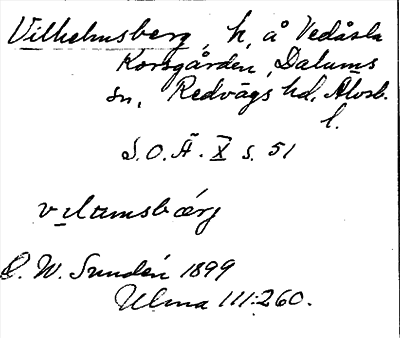 Vilhelmsberg, h, å Vedåsla
Korsgården, Dalums
sn, Redvägs hd, Älvsb.
l.
S.O.Ä. X s. 51
vɪlamsbærj
C. W. Sundén 1899
Ulma 111:260.